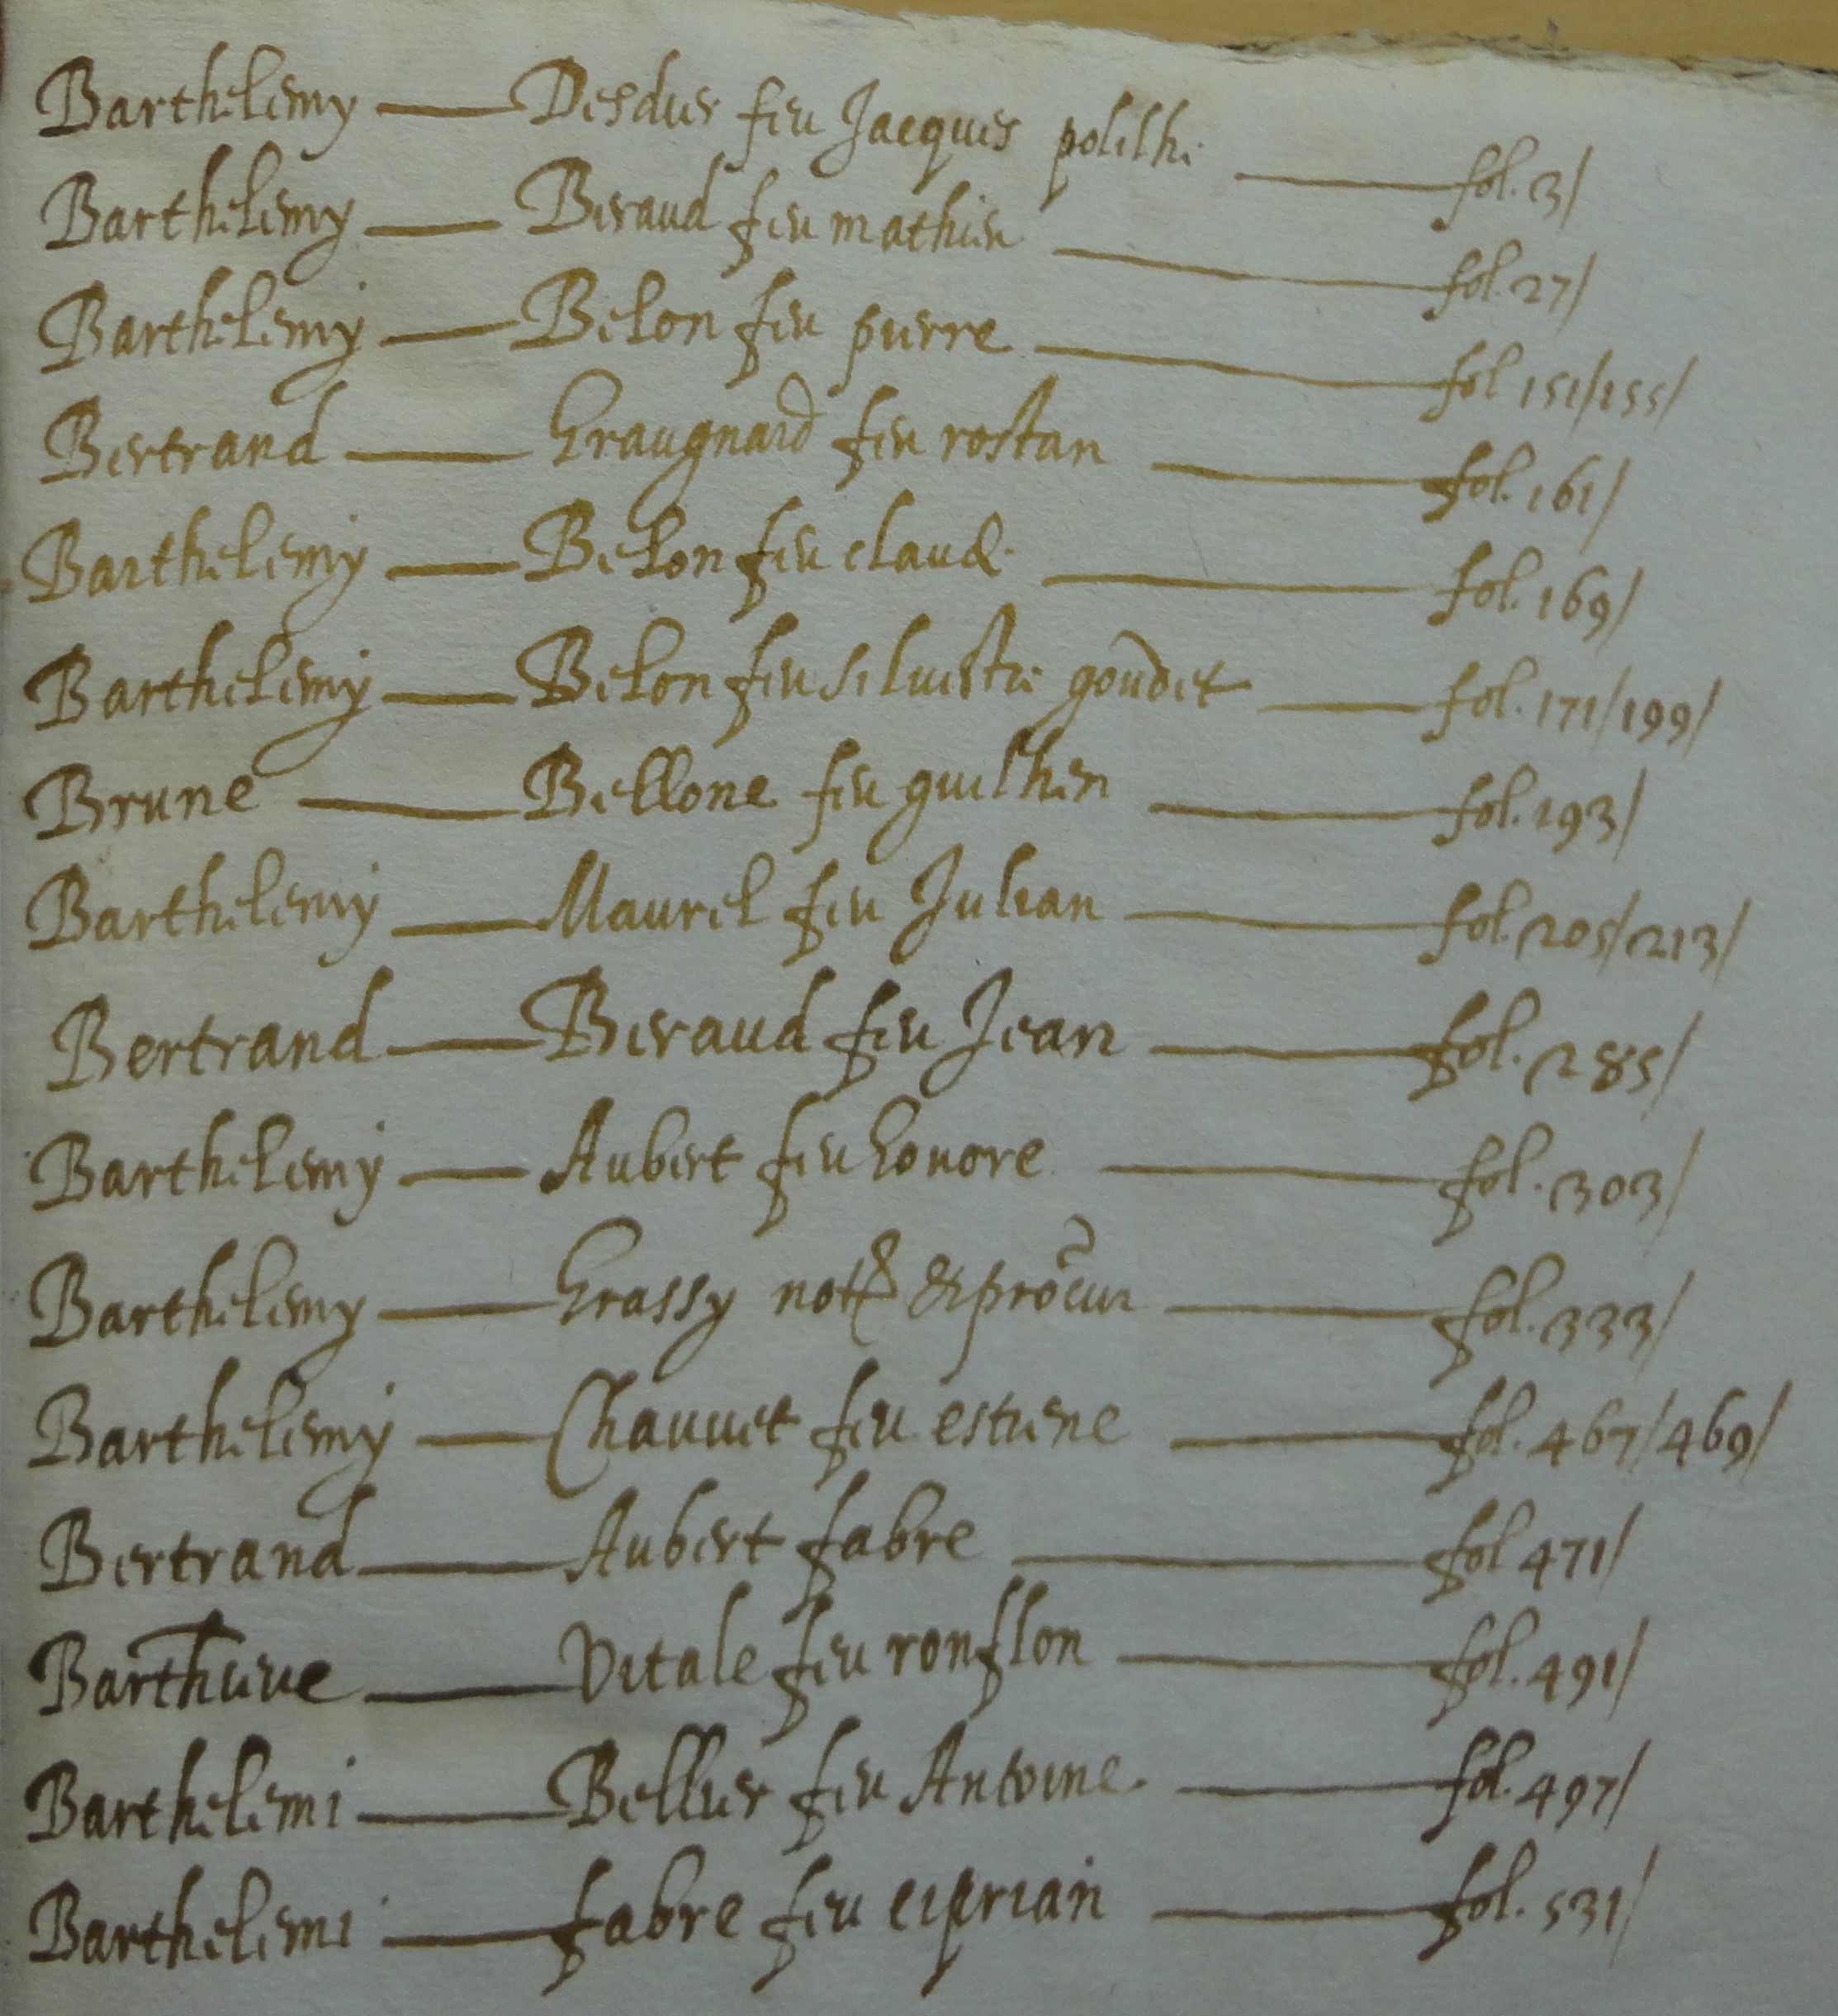 Barthelemy — Desdier feu Jacques polithe — fol. 3/
Barthelemy — Beraud feu mathieu — fol. 27/
Barthelemy — Belon feu pierre — fol 151/155/
Bertrand — Graugnard feu rostan — fol. 161/
Barthelemy — Belon feu claude — fol. 169/
Barthelemy — Belon feu siluestre goudet — fol. 171/199/
Brune — Bellone feu guilhen — fol. 193/
Barthelemy — Maurel feu Julian — fol. 205/213/
Bertrand — Beraud feu Jean — fol. 285/
Barthelemy — Aubert feu honore — fol. 303/
Barthelemy — Grassy notre & procur — fol. 333/
Barthelemy — Chauuet feu estiene — fol. 467/469/
Bertrand — Aubert fabre — fol 471/
Vitale feu ronflon — fol. 491/
Barthelemi — Bellier feu Antoine — fol. 497/
Barthelemi — fabre feu ciprian — fol. 531/